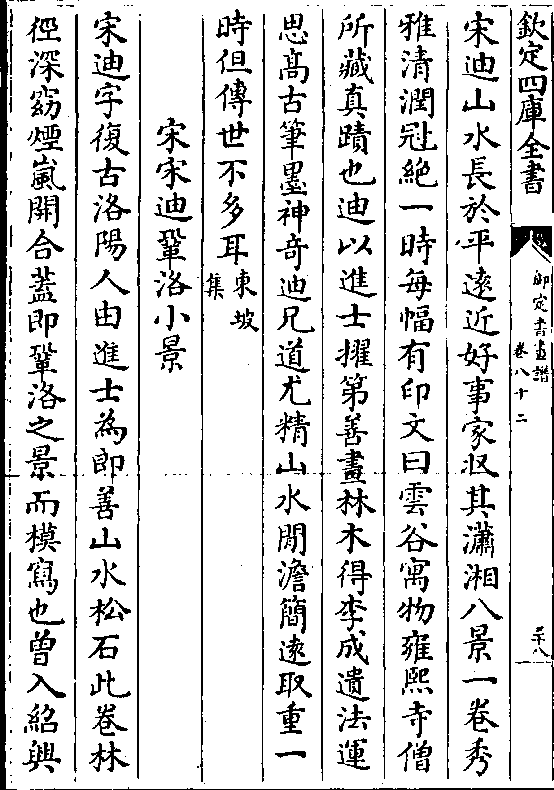 欽定四庫全書
御定書畫譜
卷八十二
三十八
宋迪山水長於平遠近好事家収其瀟湘八景一卷秀
雅清潤冠絶一時每幅有印文曰雲谷寓物雍熙寺僧
所藏真蹟也迪以進士擢第善畫林木得李成遺法運
思髙古筆墨神奇迪兄道尤精山水閒澹簡逺取重一
時但傳世不多耳東坡集
宋宋迪鞏洛小景
宋迪字復古洛陽人由進士為郎善山水松石此卷林
徑深窈煙嵐開合葢即鞏洛之景而模寫也曾入紹興